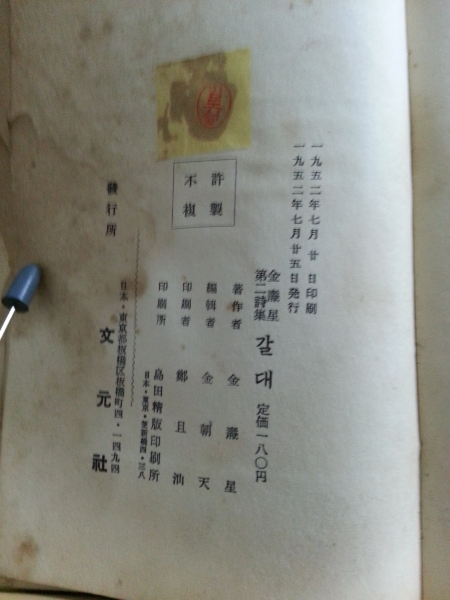 一九五二年七月廿日印刷
一九五二年七月廿五日発行
金壽星
第二詩集
갈대
定価一八〇円
著作者 金壽星
編輯者 金朝天
印刷者 鄭且汕
印刷所 島田精版印刷所
日本・東京・芝新橋四・三八
不許
複製
發行所
日本・東京都板橋区板橋町四・一四九四
文元社